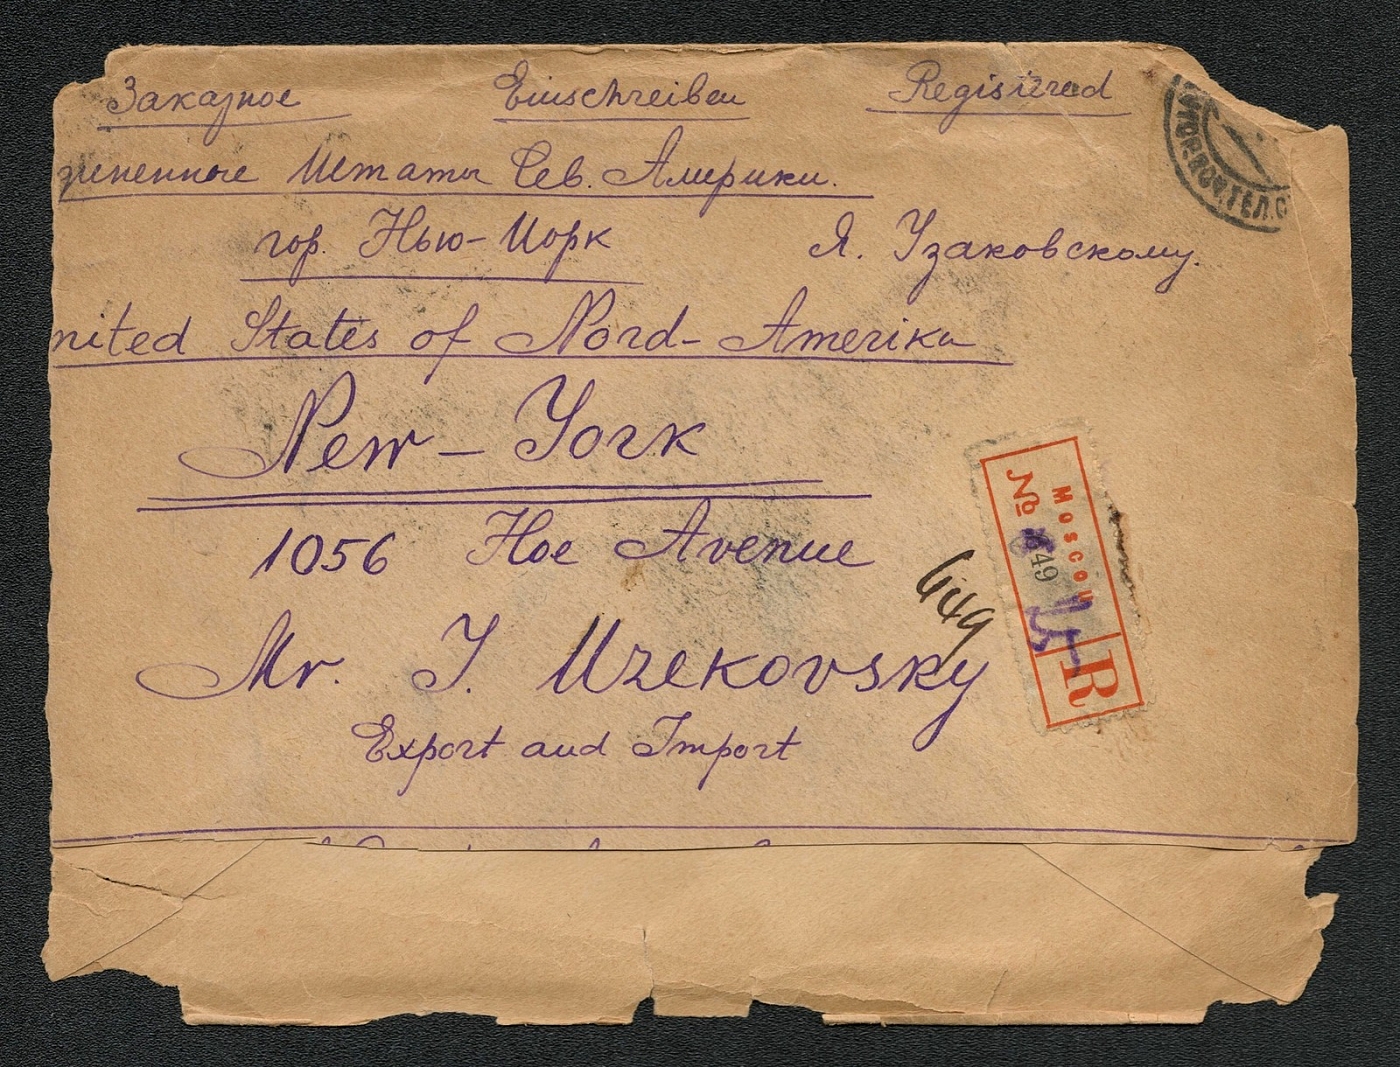 Заказное Einschreiben Registered
диненные Штаты Сев. Америки.
гор. Нью-Иорк Я. Узаковскому.
nited States of Nord-Amerika
New-York
1056 Hoe Avenue
Mr. J. Uzekovsky
Export and Import
Moscou
№ 49
R
649